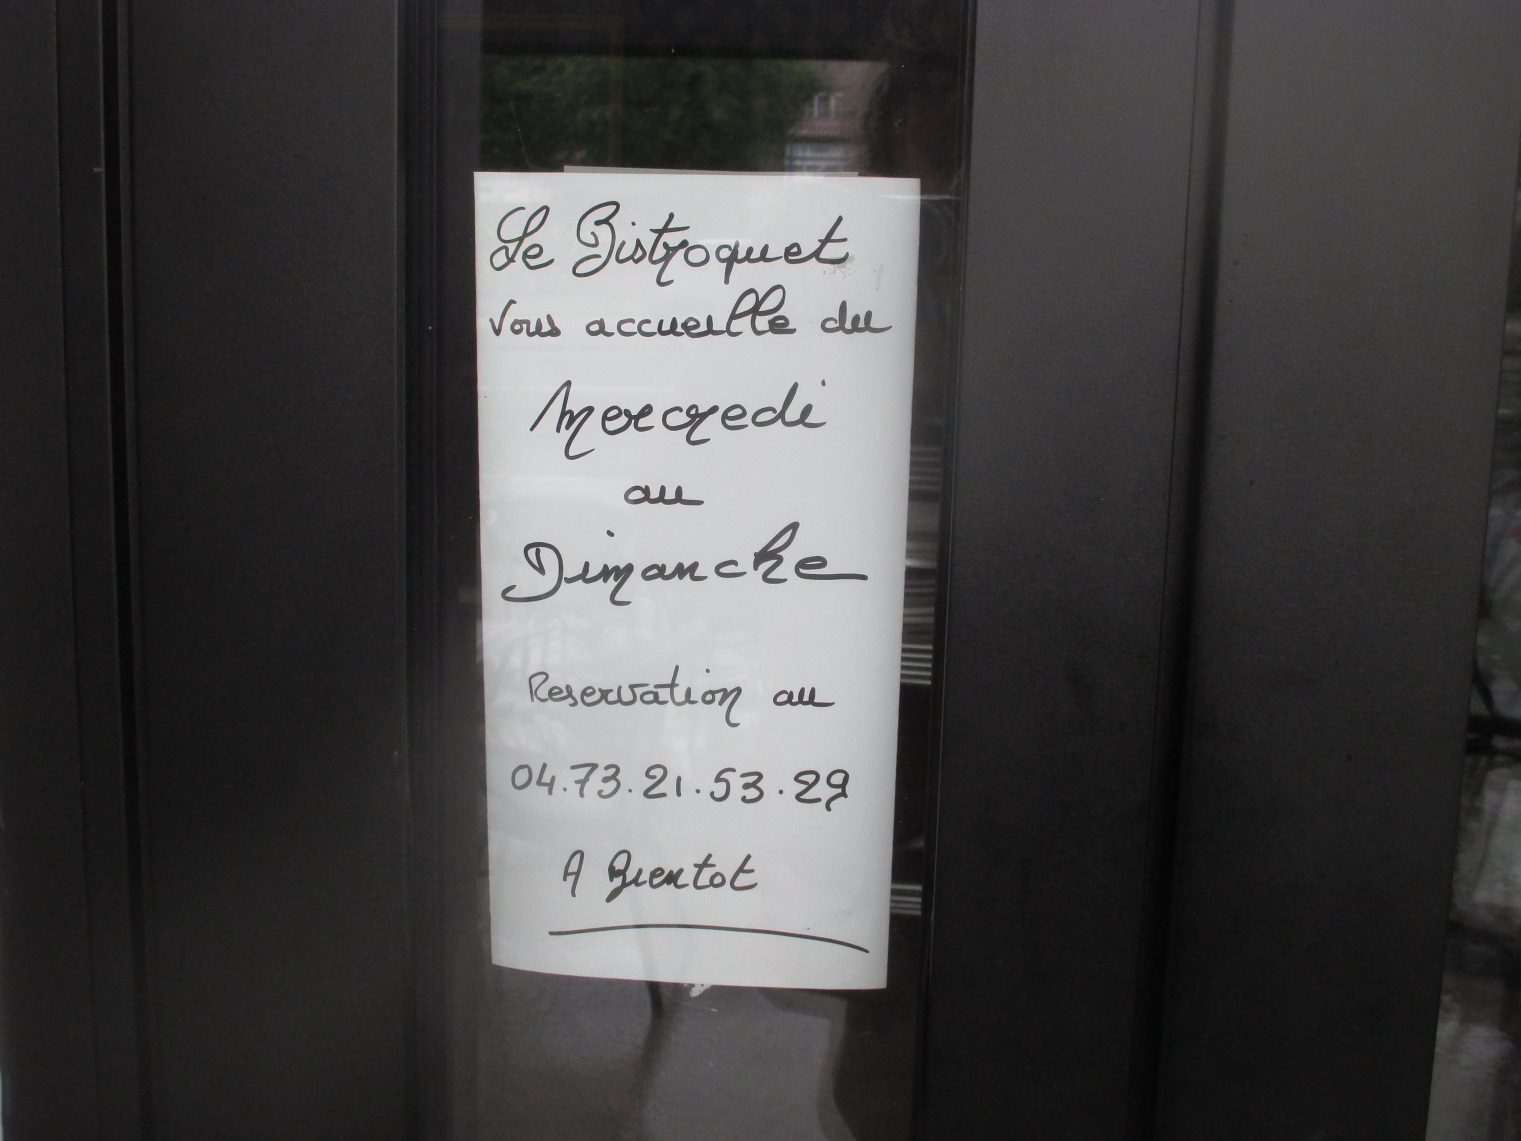 Le Bistroquet
Vous accueille du
Mercredi
au
Dimanche
Reservation au
04.73.21.53.29
A Bientot